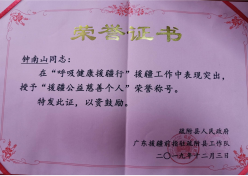 荣誉证书
钟南山同志：
在“呼吸健康援疆行”援疆工作中表现突出，
授予“援疆公益慈善个人”荣誉称号。
特发此证，以资鼓励。
疏附县人民政府
广东援疆前指驻疏附县工作队
二〇一九年十二月三日